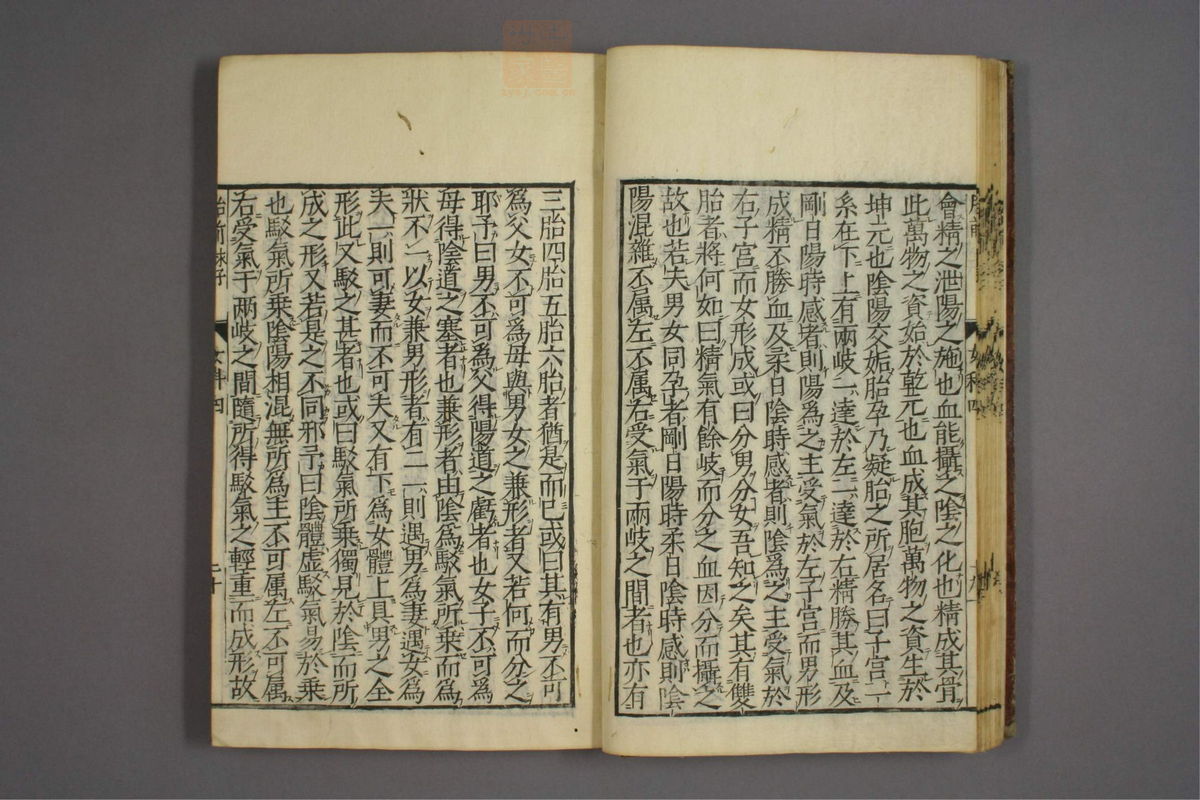 會精之泄陽之施也血能攝之陰之化也精成其骨
此萬物之資始於乾元也血成其胞萬物之資生於
坤元也陰陽交姤胎孕乃凝胎之所居名曰子宮一
系在下上有兩岐一達於左一達於右精勝其血及
剛日陽時感者則陽爲之主受氣於左子宮而男形
成精不勝血及柔日陰時感者則陰爲之主受氣於
右子宮而女形成或曰分男分女吾知之矣其有雙
胎者將何如曰精氣有餘岐而分之血因分而攝之
故也若夫男女同孕者剛日陽時柔日陰時感則陰
陽混雜不属左不属右受氣于兩岐之間者也亦有
三胎四胎五胎六胎者猶是而已或曰其有男不可
爲父女不可爲母與男女之兼形者又若何而分之
耶予曰男不可爲父得陽道之虧者也女子不可爲
母得陰道之塞者也兼形者由陰爲駁氣所乗而爲
狀不一以女兼男形者有二一則遇男爲妻遇女爲
夫一則可妻而不可夫又有下爲女體上具男之全
形此又駁之甚者也或曰駁氣所乗獨見於陰而所
成之形又若是之不同邪予曰陰體虚駁氣易於乗
也駁氣所乗陰陽相混無所爲主不可属左不可属
右受氣于兩岐之間隨所得駁氣之輕重而成形故
女科四
二十
zysj.com.cn